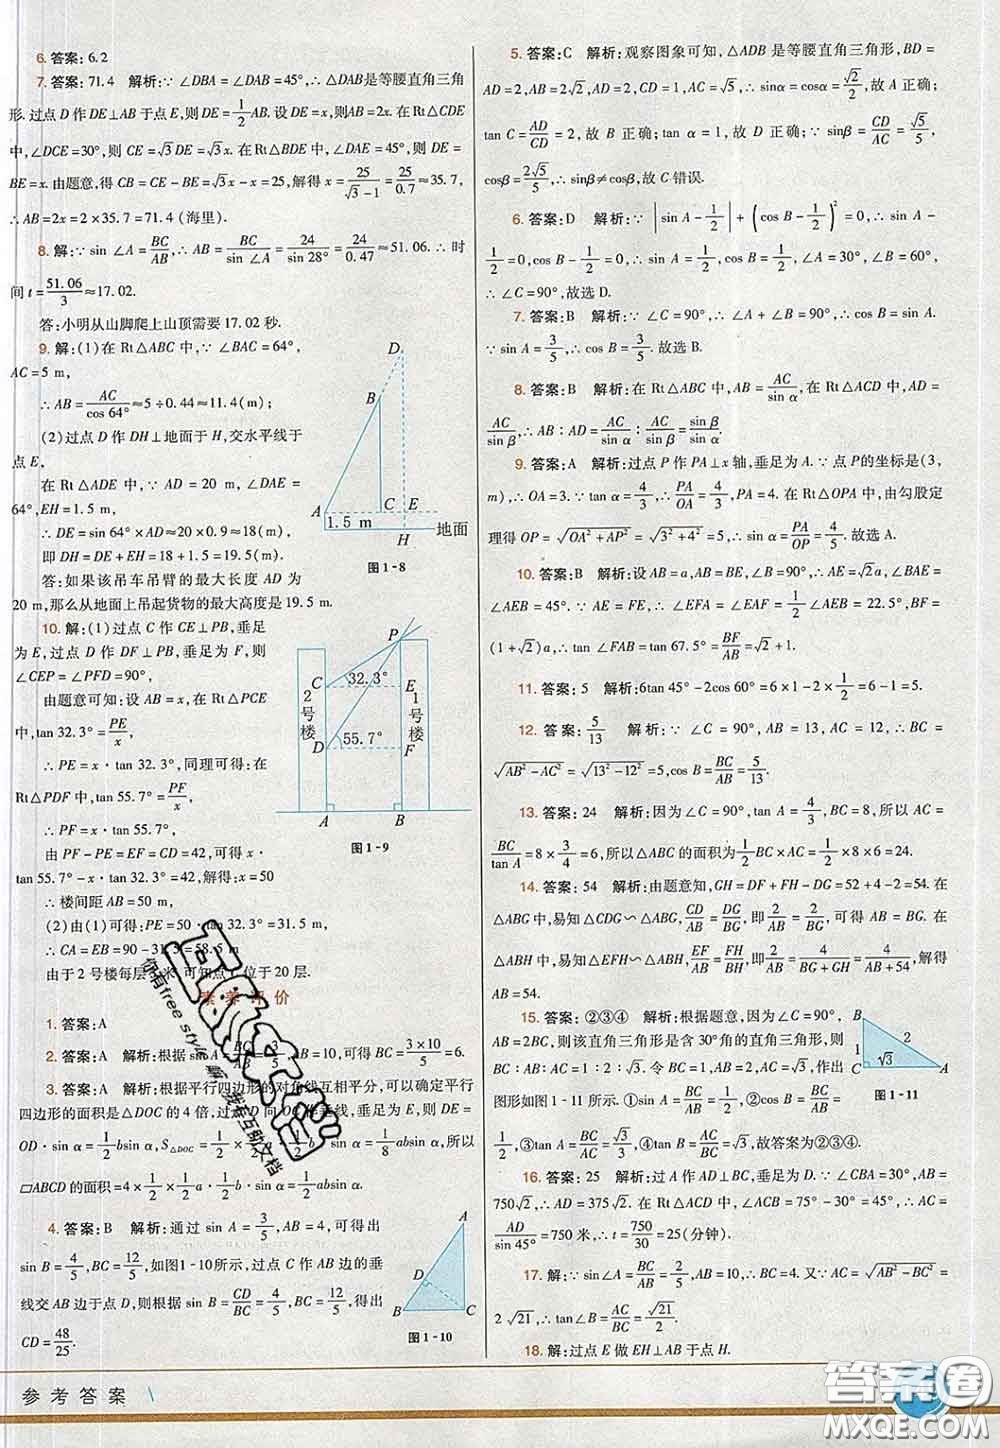 6. 答案: 6.2
7. 答案: 71.4 解析: ∵∠DBA=∠DAB=45°,∴△DAB是等腰直角三角
形. 过点 D 作 DE⊥AB 于点 E,则 DE=1/2 AB. 设 DE=x,则 AB=2x. 在 Rt△CDE
中,∠DCE=30°,则 CE=√3 DE=√3 x. 在 Rt△BDE 中,∠DAE=45°,则 DE=
BE=x. 由题意,得 CB=CE-BE=√3 x-x=25,解得 x=25/(√3-1)=25/0.7≈35.7,
∴AB=2x=2×35.7=71.4 (海里).
8. 解:∵sin ∠A=BC/AB,∴AB=BC/sin∠A=24/sin 28°=24/0.47≈51.06. ∴时
间 t=51.06/3≈17.02.
答:小明从山脚爬上山顶需要 17.02 秒.
9. 解:(1)在 Rt△ABC 中,∵∠BAC=64°,
AC=5 m,
∴AB=AC/cos 64°≈5÷0.44≈11.4(m);
(2)过点 D 作 DH⊥地面于 H,交水平线于
点 E,
在 Rt△ADE 中,∵AD=20 m,∠DAE=
64°,EH=1.5 m,
∴DE=sin 64°×AD≈20×0.9≈18(m),
即 DH=DE+EH=18+1.5=19.5(m).
答:如果该吊车吊臂的最大长度 AD 为
20 m,那么从地面上吊起货物的最大高度是 19.5 m.
D
B
A
C E
1.5 m
地面
H
图 1-8
10. 解:(1)过点 C 作 CE⊥PB,垂足
为 E,过点 D 作 DF⊥PB,垂足为 F,则
∠CEP=∠PFD=90°,
由题意可知:设 AB=x,在 Rt△PCE
中,tan 32.3°=PE/x,
∴PE=x·tan 32.3°,同理可得:在
Rt△PDF 中,tan 55.7°=PF/x,
∴PF=x·tan 55.7°,
由 PF-PE=EF=CD=42,可得:x·
tan 55.7°-x·tan 32.3°=42,解得:x=50
∴楼间距 AB=50 m,
(2)由(1)可得:PE=50·tan 32.3°=31.5 m,
∴CA=EB=90-31.5=58.5 m
由于 2 号楼每层3米,可知点C位于20层.
P
C 32.3° E
2号楼
1号楼
D 55.7° F
A B
图 1-9
素养评价
1. 答案: A
2. 答案: A 解析:根据 sin A=BC/AB=3/5,AB=10,可得 BC=(3×10)/5=6.
3. 答案: A 解析:根据平行四边形的对角线互相平分,可以确定平行
四边形的面积是△DOC 的 4 倍,过点D向OC作垂线,垂足为 E. DE=
OD·sin α=1/2 bsin α,S△DOC=1/2×1/2a×1/2bsin α=1/8 absin α,所以
▱ABCD 的面积=4×1/2×1/2a·1/2b·sin α=1/2absin α.
4. 答案: B 解析:通过 sin A=3/5,AB=4,可得出
sin B=4/5,BC=12/5,如图1-10所示,过点 C 作 AB 边的垂
线交 AB 边于点 D,则根据 sin B=CD/BC=4/5,BC=12/5,得出
CD=48/25.
A
D
B C
图 1-10
5. 答案: C 解析:观察图象可知,△ADB 是等腰直角三角形,BD=
AD=2,AB=2√2,AD=2,CD=1,AC=√5,∴sinα=cosα=√2/2,故 A 正确;
tan C=AD/CD=2,故 B 正确;tan α=1,故 D 正确;∵sinβ=CD/AC=√5/5,
cosβ=2√5/5,∴sinβ≠cosβ,故 C 错误.
6. 答案: D 解析:∵|sin A-1/2|+(cos B-1/2)²=0,∴sin A-
1/2=0,cos B-1/2=0,∴sin A=1/2,cos B=1/2,∴∠A=30°,∠B=60°,
∴∠C=90°,故选 D.
7. 答案: B 解析:∵∠C=90°,∴∠A+∠B=90°,∴cos B=sin A.
∵sin A=3/5,∴cos B=3/5. 故选 B.
8. 答案: B 解析:在 Rt△ABC 中,AB=AC/sin α,在 Rt△ACD 中,AD=
AC/sin β,∴AB:AD=AC/sin α:AC/sin β=sin β/sin α.
9. 答案: A 解析:过点 P 作 PA⊥x 轴,垂足为 A. ∵点 P的坐标是(3,
m),∴OA=3. ∵tan α=4/3,∴PA/OA=4/3,PA=4. 在 Rt△OPA 中,由勾股定
理得 OP=√(OA²+AP²)=√(3²+4²)=5,∴sin α=PA/OP=4/5. 故选 A.
10. 答案: B 解析:设 AB=a,AB=BE,∠B=90°,∴AE=√2a,∠BAE=
∠AEB=45°. ∵AE=FE,∴∠EFA=∠EAF=1/2∠AEB=22.5°,BF=
(1+√2)a,∴tan ∠FAB=tan 67.5°=BF/AB=√2+1.
11. 答案: 5 解析:6tan 45°-2cos 60°=6×1-2×1/2=6-1=5.
12. 答案: 5/13 解析:∵∠C=90°,AB=13,AC=12,∴BC=
√(AB²-AC²)=√(13²-12²)=5,cos B=BC/AB=5/13.
13. 答案: 24 解析:因为∠C=90°,tan A=4/3,BC=8,所以 AC=
BC/tan A=8×3/4=6,所以△ABC 的面积为1/2BC×AC=1/2×8×6=24.
14. 答案: 54 解析:由题意知,GH=DF+FH-DG=52+4-2=54. 在
△ABG 中,易知△CDG∽△ABG,CD/AB=DG/BG,即2/AB=2/BG,可得 AB=BG. 在
△ABH 中,易知△EFH∽△ABH,EF/AB=FH/BH,即2/AB=4/(BG+GH)=4/(AB+54),解得
AB=54.
15. 答案: ②③④ 解析:根据题意,因为∠C=90°,
AB=2BC,则该直角三角形是含 30°角的直角三角形,则
BC:AB:AC=1:2:√3. 令 BC=1,AB=2,AC=√3,作出
图形如图 1-11 所示. ①sin A=BC/AB=1/2,②cos B=BC/AB
=1/2,③tan A=BC/AC=√3/3,④tan B=AC/BC=√3,故答案为②③④.
B
2
1
√3
C A
图 1-11
16. 答案: 25 解析:过 A 作 AD⊥BC,垂足为 D. ∵∠CBA=30°,AB=
750√2,∴AD=375√2. 在 Rt△ACD 中,∠ACB=75°-30°=45°,∴AC=
AD/sin 45°=750 米,∴t=750/30=25(分钟).
17. 解:∵sin∠A=BC/AB=2/5,AB=10,∴BC=4. 又∵AC=√(AB²-BC²)=
2√21,∴tan B=AC/BC=√21/2.
18. 解:过点 E 做 EH⊥AB 于点 H.
参考答案
答案圈
MXQE.COM